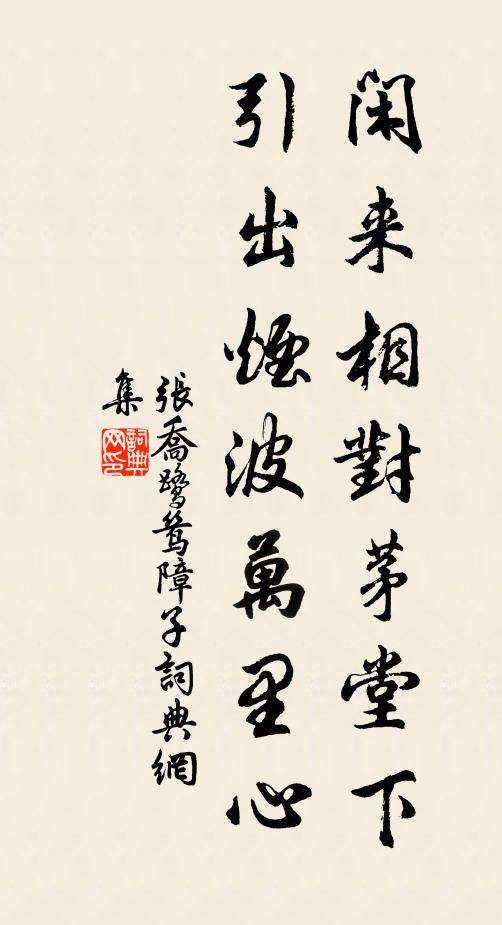 閑来相對茅堂下
引出煙波萬里心
張喬鷺鷥障子詞典網
集
詞典
网印